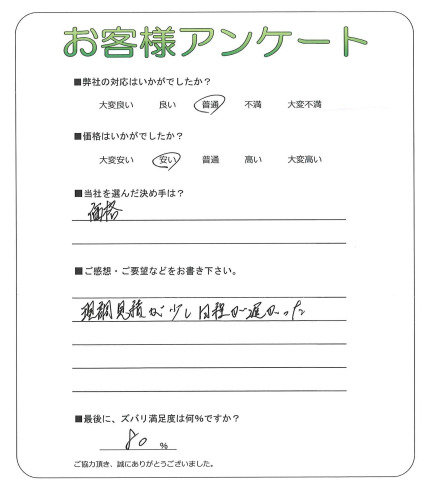 お客様アンケート
■弊社の対応はいかがでしたか？
大変良い 良い 普通 不満 大変不満
■価格はいかがでしたか？
大変安い 安い 普通 高い 大変高い
■当社を選んだ決め手は？
価格
■ご感想・ご要望などをお書き下さい。
現調見積が少し日程が遅かった
■最後に、ズバリ満足度は何%ですか？
80 %
ご協力頂き、誠にありがとうございました。